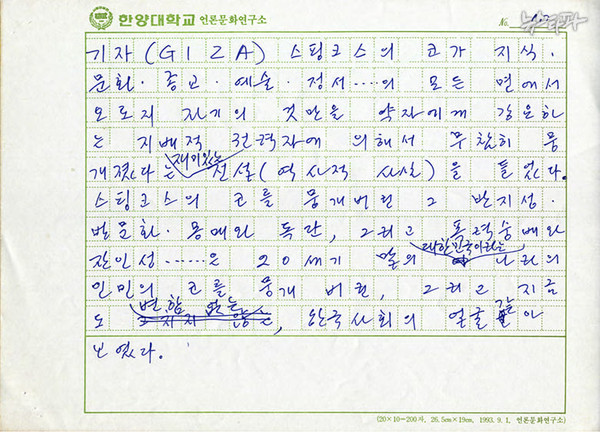 한양대학교 언론문화연구소 No. 뉴스타파
기자(GIZA) 스핑크스의 코가 지식·
문화·종교·예술·정서……의 모든 면에서
오로지 자기의 것만을 약자에게 강요하
는 지배적 권력자에 의해서 무참히 뭉
재미있는
개졌다는 전설(역사적 사실)을 들었다.
스핑크스의 코를 뭉개버린 그 반지성·
반문화·몽매와 독단, 그리고 폭력숭배와
대한민국이라는
잔인성……은 20세기 말의 나라의
인민의 코를 뭉개 버린, 그리고 지금
변함 없는
도 , 한국사회의 얼굴 같아
보였다.
(20×10=200자, 26.5cm×19cm, 1993. 9. 1, 언론문화연구소)